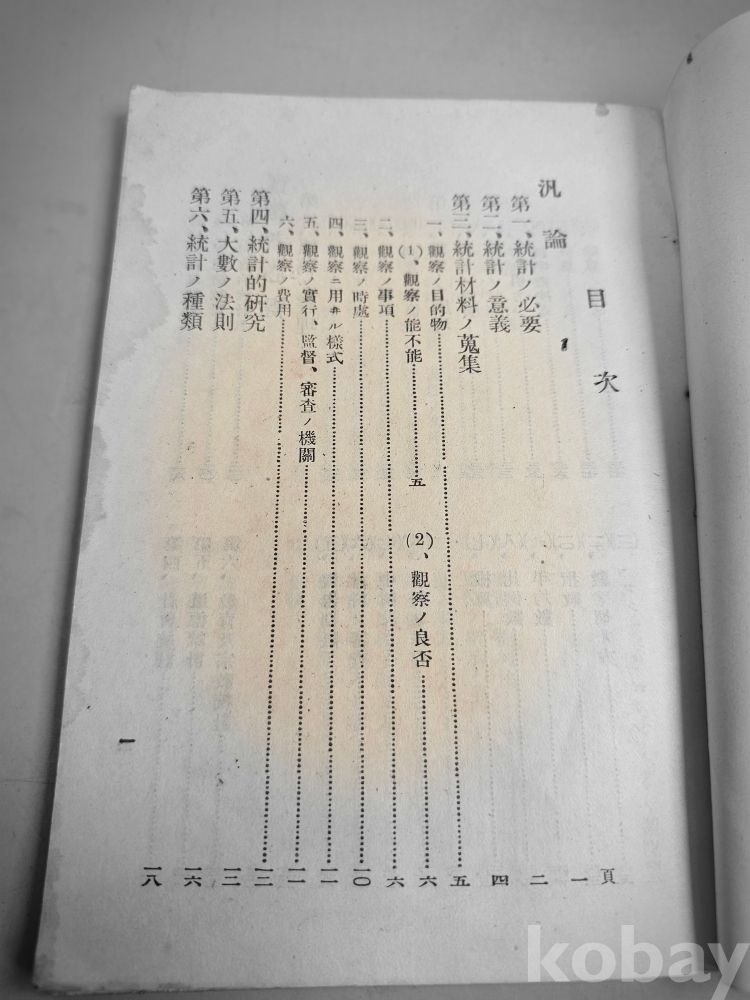 目次
頁
汎論
第一、統計ノ必要 一
第二、統計ノ意義 二
第三、統計材料ノ蒐集 四
一、觀察ノ目的物 五
(1)、觀察ノ能不能 五 (2)、觀察ノ良否 六
二、觀察ノ事項 六
三、觀察ノ時處 一〇
四、觀察ニ用ヰル樣式 一一
五、觀察ノ實行、監督、審査ノ機關 一一
六、觀察ノ費用 一三
第四、統計的研究 一三
第五、大數ノ法則 一六
第六、統計ノ種類 一八
一
kobay